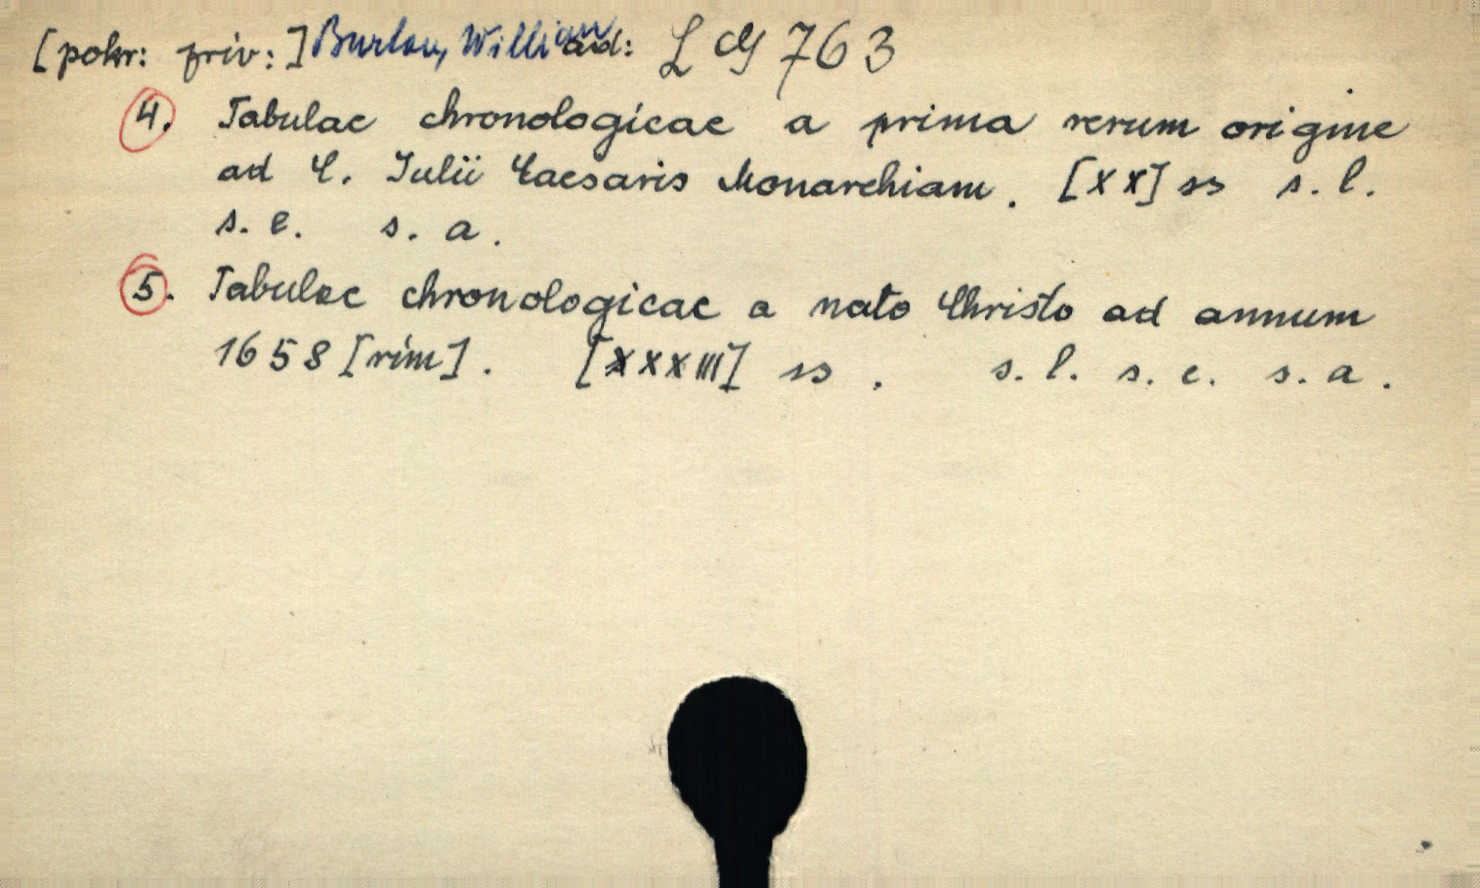 [pokr: priv:] Burton, William ad: L G 763
4. Tabulae chronologicae a prima rerum origine
ad C. Iulii Caesaris Monarchiam. [XX] ss s. l.
s. e. s. a.
5. Tabulae chronologicae a nato Christo ad annum
1658 [rim]. [XXXIII] ss. s. l. s. e. s. a.